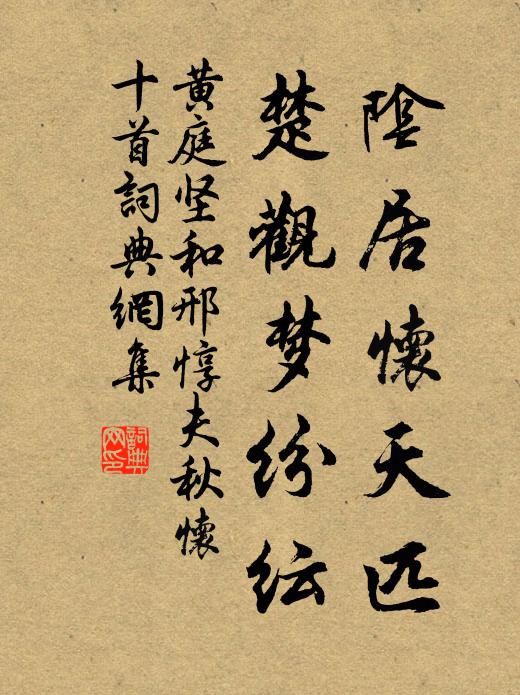 陰居懷天匹
楚觀梦纷纭
黄庭坚和邢惇夫秋懷
十首詞典網集
詞典
网印